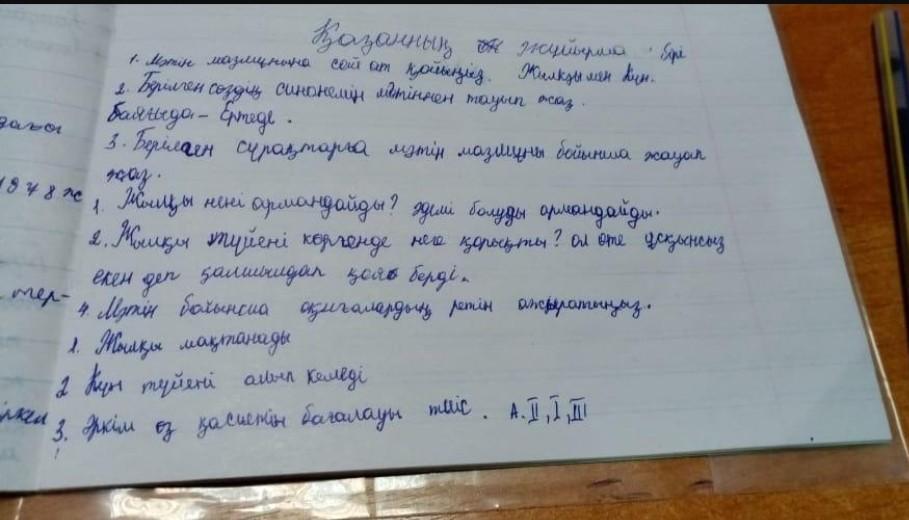 Қазанның жиырма бірі
1. Мәтін мазмұнына сай ат қойыңыз. Жылқы мен Күн.
2. Берілген сөздің синонемін мәтіннен тауып жаз.
Баяғыда - Ертеде.
3. Берілген сұрақтарға мәтін мазмұны бойынша жауап
жаз.
1. Жылқы нені армандайды? Әдемі болуды армандайды.
2. Жылқы түйені көргенде неге қорықты? Ол өте ұсқынсыз
екен деп қалшылдап қоя берді.
4. Мәтін бойынша оқиғалардың ретін ажыратыңыз.
1. Жылқы мақтанады
2 Күн түйені алып келеді
3. Әркім өз қасиетін бағалауы тиіс. А. II, I, III
1978 ж
тер-